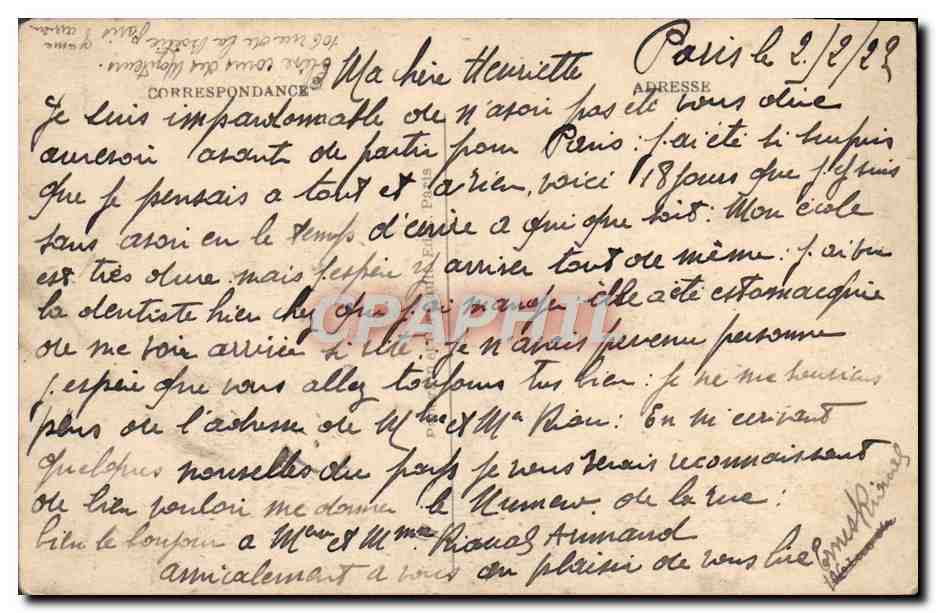 Paris le 2/2/22
Ma chère Henriette
CORRESPONDANCE
ADRESSE
Je suis impardonnable de n'avoir pas été vous dire
aurevoir avant de partir pour Paris : j'ai été si
que je pensais a tout et a rien, voici 18 jours que j'y suis
sans avoir eu le temps d'écrire a qui que soit : Mon école
est très dure mais j'espère y arriver tout de même : j'ai vu
la dentiste hier chez que j'ai mangé elle a été estomaquée
de me voir arrivée si vite : je n'avais prévenu personne
j'espère que vous allez toujours tres bien : je ne me souviens
plus de l'adresse de Mme et Mr Riou : En m'ecrivant
quelques nouvelles du pays je vous serais reconnaissant
de bien vouloir me donner le Numero de la rue :
bien le bonjour a Mr et Mme Rioual Armand
amicalement a vous au plaisir de vous lire
Ernest Rioual
élève cours des Monteurs.
106 rue de la Boëtie
Paris 8 arron
CPAPHIL